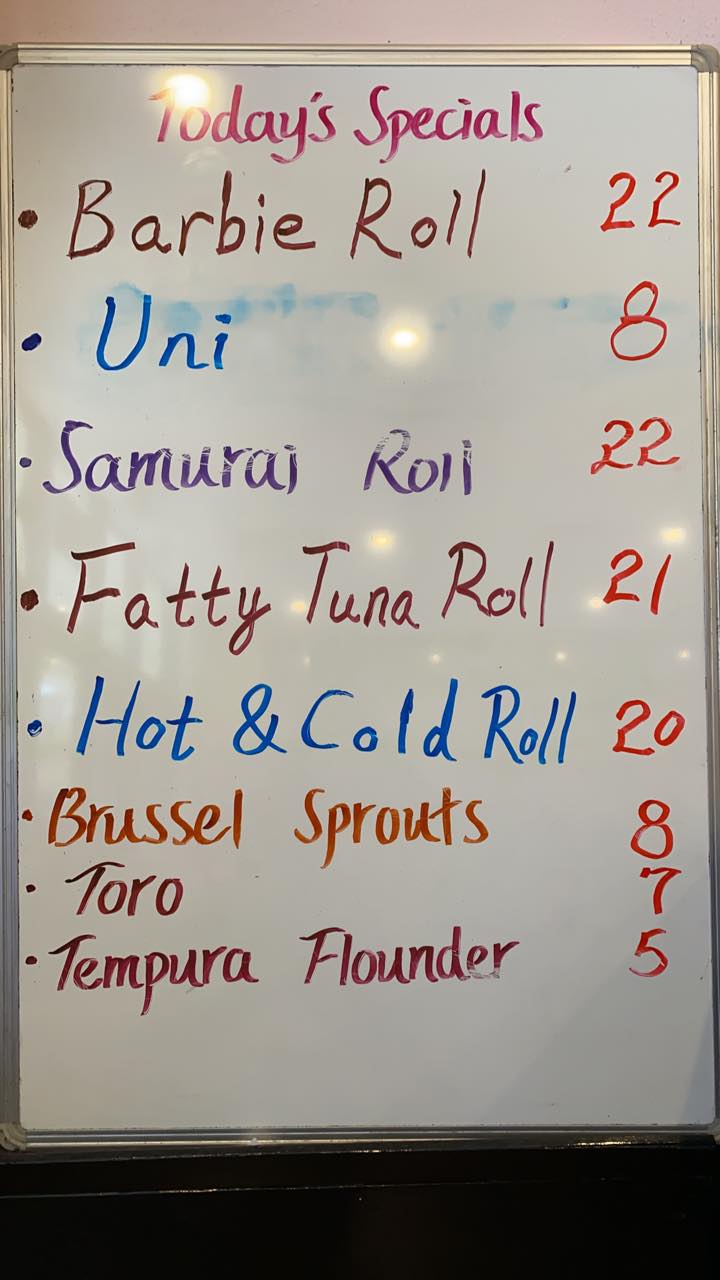 Today's Specials
• Barbie Roll 22
• Uni 8
• Samurai Roll 22
• Fatty Tuna Roll 21
• Hot & Cold Roll 20
• Brussel Sprouts 8
• Toro 7
• Tempura Flounder 5